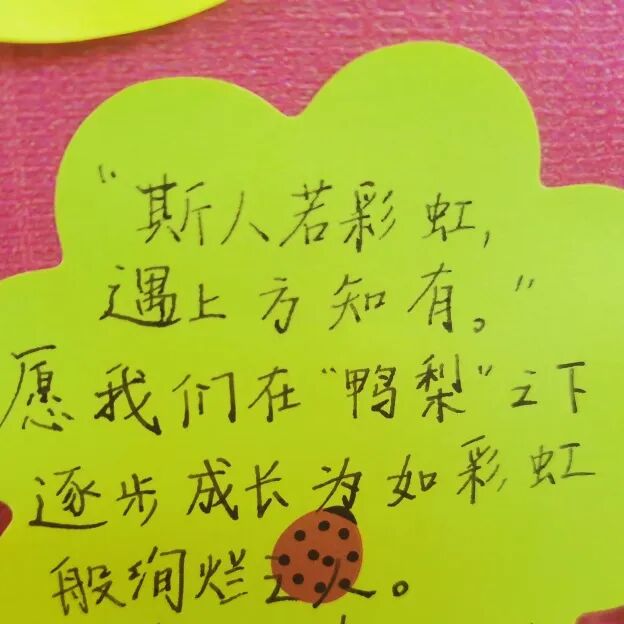 “斯人若彩虹,
遇上方知有。”
愿我们在“鸭梨”之下
逐步成长为如彩虹
般绚烂之人。